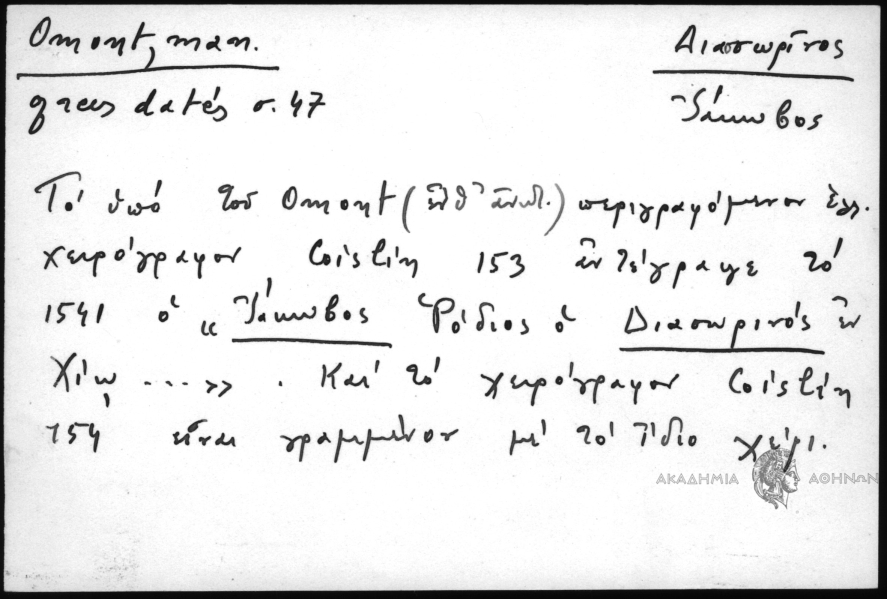 Omont, man.
grecs datés σ. 47
Διασωρῖνος
Ἰάκωβος
Τό ὑπό τοῦ Omont (ἔνθ' ἀνωτ.) περιγραφόμενον ἑλλ.
χειρόγραφον Coislin 153 ἀντέγραψε τό
1541 ὁ « Ἰάκωβος Ῥόδιος ὁ Διασωρινός ἐν
Χίῳ ....» . Καί τό χειρόγραφον Coislin
154 εἶναι γραμμένον μέ τό ἴδιο χέρι.
ΑΚΑΔΗΜΙΑ ΑΘΗΝΩΝ